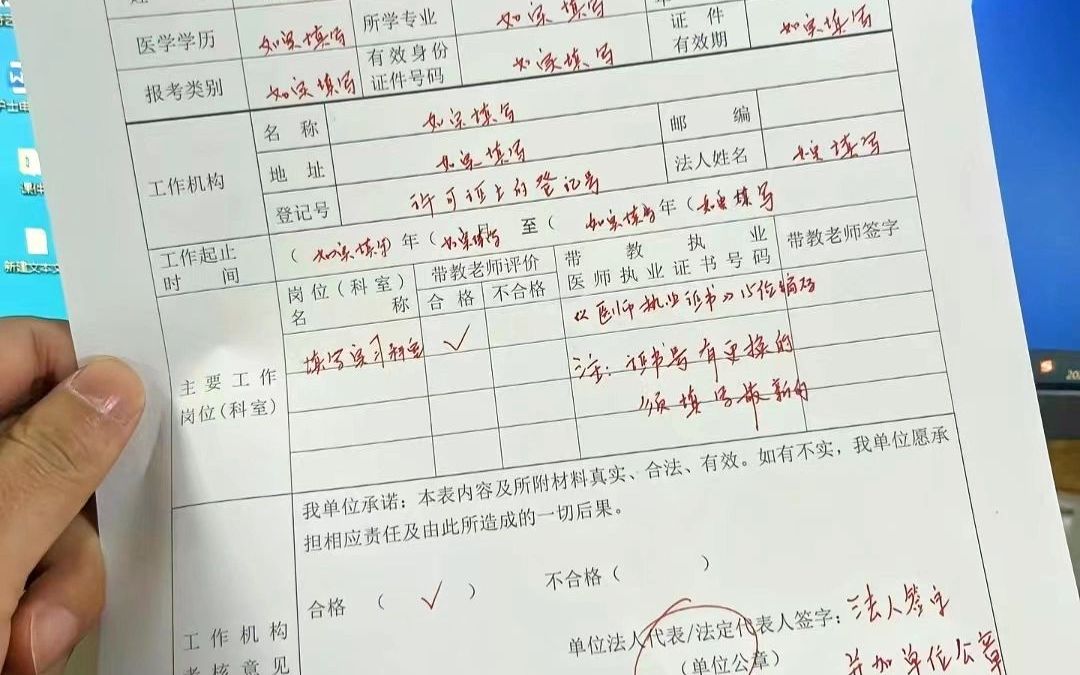 所学专业 如实填写 证件有效期 如实填写
医学学历 如实填写 有效身份证件号码 如实填写
报考类别 如实填写
工作机构
名称 如实填写 邮编
地址 如实填写 法人姓名 如实填写
登记号 许可证上的登记号
工作起止时间 ( 如实填写 年 ( 如实填写 月 至 ( 如实填写 年 ( 如实填写
主要工作岗位(科室)
岗位(科室)名称 带教老师评价 带教执业医师执业证书号码 带教老师签字
合格 不合格
填写实习科室 ✓ 《医师执业证书》15位编码
注:证书号有更换的
须填写最新的
我单位承诺:本表内容及所附材料真实、合法、有效。如有不实,我单位愿承
担相应责任及由此所造成的一切后果。
合格 ( ✓ ) 不合格( )
工作机构
考核意见
单位法人代表/法定代表人签字: 法人签字
(单位公章) 并加单位公章